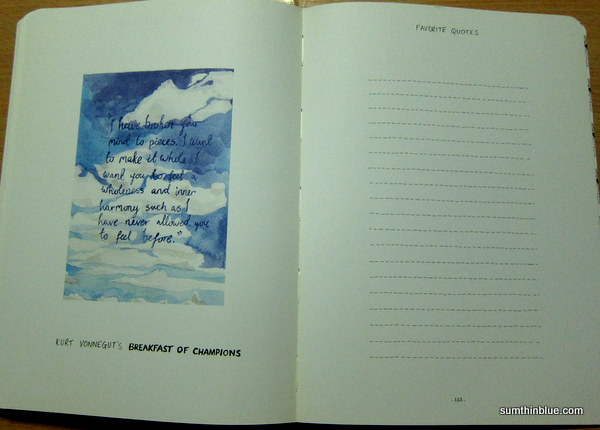 "I have broken your
mind to pieces. I want
to make it whole. I
want you to feel a
wholeness and inner
harmony such as I
have never allowed you
to feel before."
KURT VONNEGUT'S BREAKFAST OF CHAMPIONS
FAVORITE QUOTES
sumthinblue.com